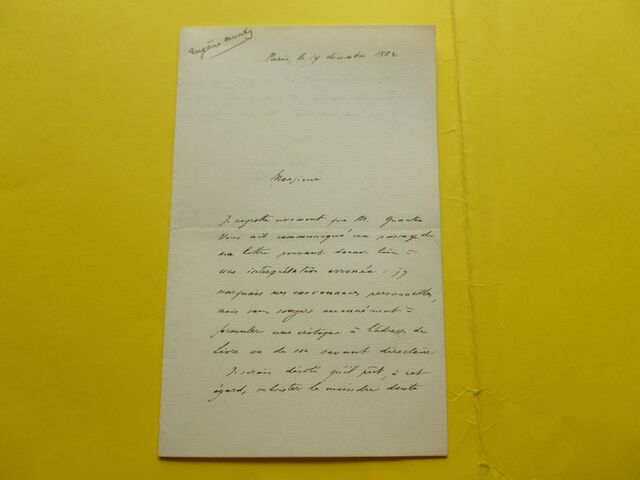 Eugène Muntz
Paris, le 19 décembre 1882
Monsieur
Je regrette vivement que M. Quantin
vous ait communiqué un passage de
ma lettre pouvant donner lieu à
une interprétation erronée : j'y
marquais mes convenances personnelles,
mais sans songer aucunément à
formuler une critique à l'adresse du
Livre ou de son savant directeur
Je serais désolé qu'il pût, à cet
égard, subsister le moindre doute